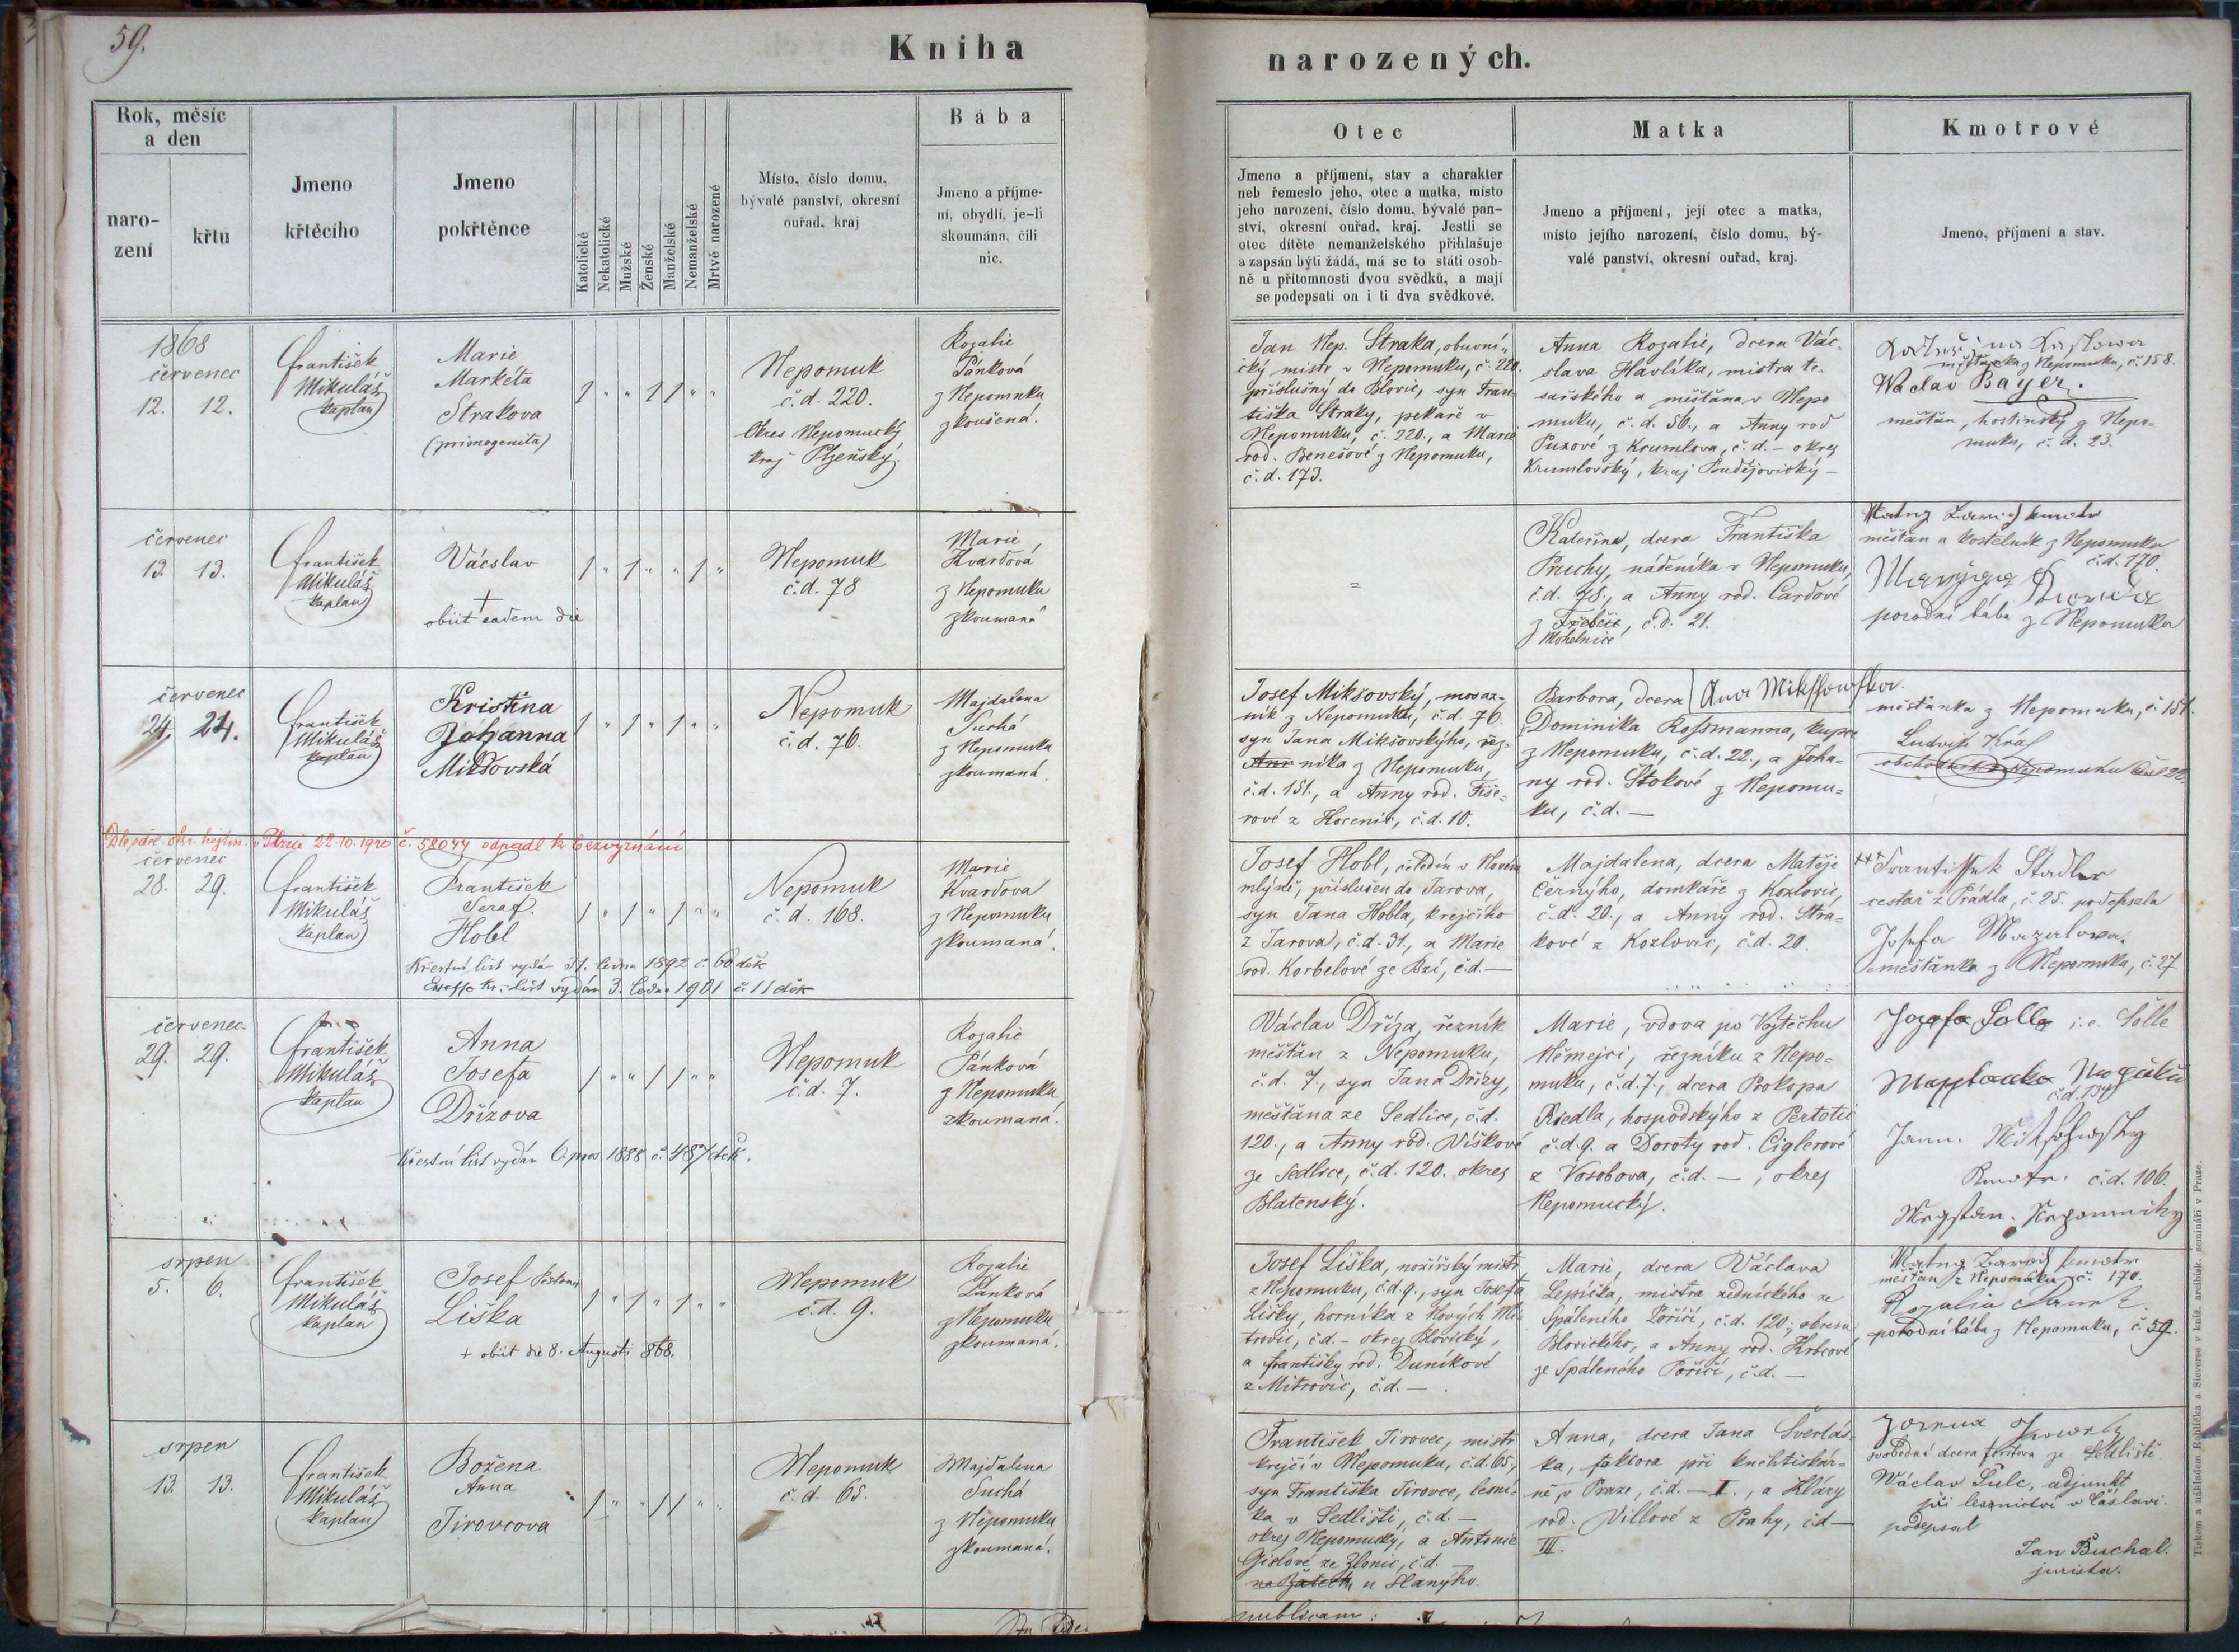 59.
Kniha
narozených.
Rok, měsíc
a den
naro-
zení
křtu
Jmeno
křtěcího
Jmeno
pokřtěnce
Katolické
Nekatolické
Mužské
Ženské
Manželské
Nemanželské
Mrtvě narozené
Místo, číslo domu,
bývalé panství, okresní
ouřad, kraj
Bába
Jmeno a příjme-
ní, obydlí, je-li
skoumána, čili
nic.
Otec
Jmeno a příjmení, stav a charakter
neb řemeslo jeho, otec a matka, místo
jeho narození, číslo domu, bývalé pan-
ství, okresní ouřad, kraj. Jestli se
otec dítěte nemanželského přihlašuje
a zapsán býti žádá, má se to státi osob-
ně u přítomnosti dvou svědků, a mají
se podepsati on i ti dva svědkové.
Matka
Jmeno a příjmení, její otec a matka,
místo jejího narození, číslo domu, bý-
valé panství, okresní ouřad, kraj.
Kmotrové
Jmeno, příjmení a stav.
1868
červenec
12. 12.
František
Mikuláš
kaplan
Marie
Markéta
Strakova
(primogenita)
Nepomuk
č.d. 220.
Okres Nepomucký
kraj Plzeňský
Rozalie
Pánková
z Nepomuku
zkoušená.
Jan Nep. Straka, obuvní-
cký mistr v Nepomuku, č. 220.
příslušný do Blovic, syn Fran-
tiška Straky, pekaře v
Nepomuku, č. 220., a Marie
rod. Benešové z Nepomuku,
č.d. 173.
Anna Rozalie, dcera Vác-
slava Havlíka, mistra te-
sařského a měšťana v Nepo
muku, č.d. 56., a Anny rod
Puxové z Krumlova, č.d. – okres
Krumlovský, kraj Budějovický –
měšťanka z Nepomuku, č. 158.
Waclav Bayer.
měšťan, hostinský z Nepo-
muku, č.d. 23.
červenec
13. 13.
František
Mikuláš
kaplan
Vácslav
obiit eadem die
Nepomuk
č.d. 78
Marie
Kvardová
z Nepomuku
zkoumaná
Kateřina, dcera Františka
Pruchy, nádeníka v Nepomuku,
č.d. 78., a Anny rod. Cardové
z Třebčic, č.d. 21.
Mohelnice
měšťan a kostelník z Nepomuku
č.d. 170.
porodní bába z Nepomuku
červenec
24. 24.
František
Mikuláš
kaplan
Kristina
Johanna
Mikšovská
Nepomuk
č.d. 76.
Majdalena
Suchá
z Nepomuka
zkoumaná.
Josef Mikšovský, mosaz-
ník z Nepomuku, č.d. 76.
syn Jana Mikšovskýho, řez-
níka z Nepomuku,
č.d. 151., a Anny rod. Fiše-
rové z Hocenic, č.d. 10.
Barbora, dcera
Dominika Rossmanna, kupce
z Nepomuku, č.d. 22., a Joha-
ny rod. Stokové z Nepomu-
ku, č.d. —
Ana Mikssowska.
měšťanka z Nepomuku, č. 151.
Ludvik Král
obchodník z Nepomuku
Dle sděl. okr. hejtm. v Plzni 22.10.1920 č. 58044 odpadl k bezvyznání
červenec
28. 29.
František
Mikuláš
kaplan
František
Seraf.
Hobl
Křestní list vydán 31. ledna 1892 č. 60 děk
list vydán 3. ledna 1901 č. 11 děk
Nepomuk
č.d. 168.
Marie
Kvardova
z Nepomuku
zkoumaná.
Josef Hobl, čeledín v Novém
mlýně, příslušen do Jarova,
syn Jana Hobla, krejčího
z Jarova, č.d. 31., a Marie
rod. Korbelové ze Bzí, č.d. —
Majdalena, dcera Matěje
Černýho, domkáře z Kozlovic,
č.d. 20., a Anny rod. Stra-
kové z Kozlovic, č.d. 20.
+++ Frantissek Stadler
cestář z Prádla, č. 25. podepsala
Josefa Mazalova.
měšťanka z Nepomuka, č. 27
červenec
29. 29.
František
Mikuláš
kaplan
Anna
Josefa
Dřízova
Křestní list vydán 6. pros. 1888 č. 487 děk.
Nepomuk
č.d. 7.
Rozalie
Pánková
z Nepomuku
zkoumaná.
Václav Dříza, řezník
měšťan z Nepomuku,
č.d. 7., syn Jana Dřízy,
měšťana ze Sedlice, č.d.
120., a Anny rod. Víškové
ze Sedlice, č.d. 120. okres
Blatenský.
Marie, vdova po Vojtěchu
Němejci, řezníku z Nepo-
muku, č.d. 7., dcera Prokopa
Riedla, hospodskýho z Pertotic
č.d. 9. a Doroty rod. Ciglerové
z Vosobova, č.d. —, okres
Nepomucký.
Jozefa Solle i.e. Šolle
č.d. 134
č.d. 106.
srpen
5. 6.
František
Mikuláš
kaplan
Josef
Liška
+ obiit die 8. Augusti 868.
Nepomuk
č.d. 9.
Rozalie
Pánková
z Nepomuku
zkoumaná.
Josef Liška, nožířský mistr
z Nepomuku, č.d. 9., syn Josefa
Lišky, horníka z Nových Mi-
trovic, č.d. – okres Blovický,
a Františky rod. Duníkové
z Mitrovic, č.d. — .
Marie, dcera Václava
Lepíčka, mistra zednického ze
Spáleného Poříčí, č.d. 120., okresu
Blovického, a Anny rod. Krbcové
ze Spáleného Poříčí, č.d. —
měšťan z Nepomuku č. 170.
Rozalia
porodní bába z Nepomuku, č. 59.
srpen
13. 13.
František
Mikuláš
kaplan
Božena
Anna
Jirovcova
Nepomuk
č.d. 65.
Majdalena
Suchá
z Nepomuku
zkoumaná.
František Jirovec, mistr
krejčí v Nepomuku, č.d. 65.,
syn Františka Jirovce, lesní-
ka v Sedlišti, č.d. —
okres Nepomucký, a Antonie
Gislové ze Zlonic, č.d. —
u Slanýho.
Anna, dcera Jana Šverlás-
ka, faktora při knihtiskár-
ně v Praze, č.d. — I., a Kláry
rod. Villové z Prahy, č.d —
III.
svobodná dcera ze Sedliště
Wáclav Šulc, adjunkt
při lesnictví v Čáslavi.
podepsal
Jan Buchal.
jurista.
publicam:
Tiskem a nákladem Rohlíčka a Sieverse v kníž. arcibisk. semináři v Praze.